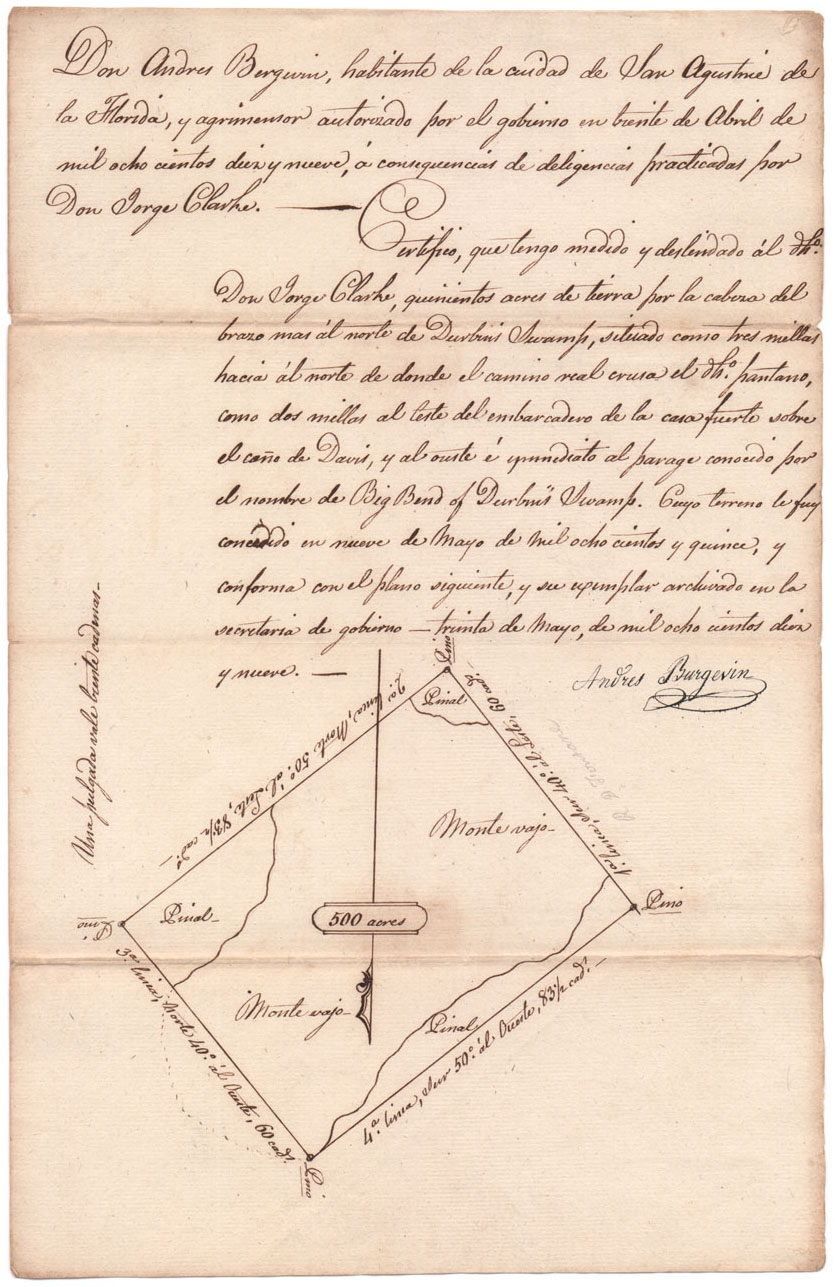 Don Andres Bergevin, habitante de la cuidad de San Agustin de
la Florida, y agrimensor autorizado por el gobierno en biente de Abril de
mil ocho cientos diez y nueve, á consequencias de deligencias practicadas por
Don Jorge Clarke. —
Certifico, que tengo medido y deslindado ál dho.
Don Jorge Clarke, quinientos acres de tierra por la cabeza del
brazo mas ál norte de Durbin's Swamp, situado como tres millas
hacia ál norte de donde el camino real crusa el dho. pantano,
como dos millas al leste del embarcadero de la casa fuerte sobre
el caño de Davis, y al ouste é ynmediato al parage conocido por
el nombre de Big Bend of Durbin's Swamp. Cuyo terreno le fuy
concedido en nueve de Mayo de mil ocho cientos y quince, y
conforma con el plano siguiente, y su exemplar archivado en la
secretaria de gobierno — trinta de Mayo, de mil ocho cientos diez
y nueve. —
Andres Burgevin
Una pulgada vale biente cadenas-
Pino
2a. linea, Norte 50° ál Leste, 83½ cads.
Pinal
1a. linea, Sur 40° ál Leste, 60 cads.
Monte vajo-
Pinal-
500 acres
Pino
Pino
3a. linea, Norte 40° ál Oueste, 60 cads.
Monte vajo-
Pinal
4a. linea, Sur 50° ál Oueste, 83½ cads. -
Pino